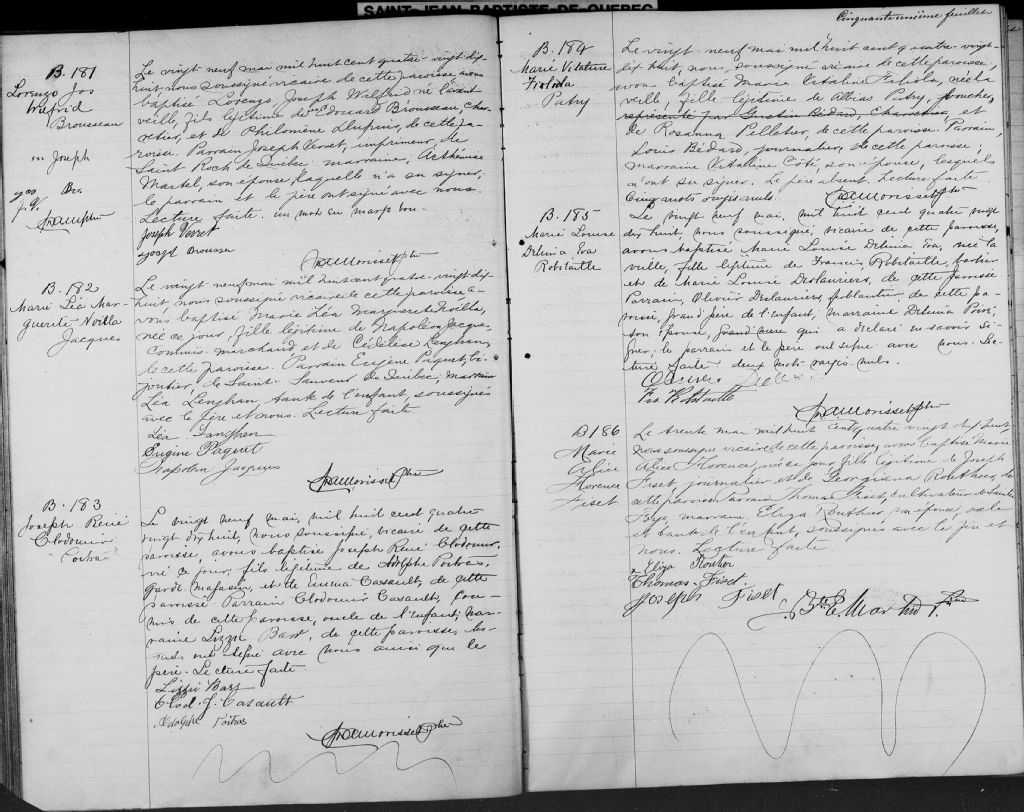 SAINT-JEAN-BAPTISTE-DE-QUEBEC
B. 181
Lorenzo Jos
Wilfrid
Brousseau
m Joseph
Le vingt neuf mai mil huit cent quatre-vingt dix
huit nous soussigné vicaire de cette paroisse avons
baptisé Lorenzo, Joseph Wilfrid né la
veille, fils légitime de Edouard Brousseau, char
retier, et de Philomène Dufresne, de cette pa
roisse. Parrain Joseph Verret, imprimeur, de
Saint Roch de Québec marraine, Arthémise
Martel, son épouse, laquelle n'a su signer,
le parrain et le père ont signé avec nous.
Lecture faite. un mot en marge bon.
Joseph Verret
Jos Brousse
B. 182
Marie Léa Mar-
guerite-Noëlla
Jacques
Le vingt neuf mai mil huit cent quatre-vingt dix
huit, nous soussigné vicaire de cette paroisse a-
vons baptisé Marie Léa Marguerite Noëlla,
née ce jour, fille légitime de Napoléon Jacques
Commis-marchand et de Lenghan,
de cette paroisse. Parrain Eugène Paquet, bi-
joutier, de Saint-Sauveur de Québec, marraine
Léa Lenghan, tante de l'enfant, soussignés
avec le père et nous. Lecture faite
Léa Langhen
Eugène Paquet
Napoléon Jacques
B. 183
Joseph René
Clodomir
Poitras
Le vingt neuf mai, mil huit cent quatre
vingt dix huit, nous soussigné, vicaire de cette
paroisse, avons baptisé Joseph René Clodomir,
né ce jour, fils légitime de Adolphe Poitras,
garde magasin, et de Emma Casault, de cette
paroisse. Parrain Clodomir Casault, Com-
mis de cette paroisse, oncle de l'enfant; mar-
raine Lizzie Barr, de cette paroisse, les-
quels ont signé avec nous ainsi que le
père. Lecture faite
Lizzie Barr
Clod. J. Casault
Adolphe Poitras
Cinquante unième feuillet
B. 184
Marie Vitaline
Patry
Le vingt-neuf mai mil huit cent quatre-vingt-
dix huit, nous, soussigné vicaire de cette paroisse,
avons baptisé Marie Vitaline née la
veille, fille légitime de Albias Patry, boucher,
représenté par Bédard, Charretier, et
de Rosanna Pelletier, de cette paroisse. Parrain,
Louis Bédard, journalier, de cette paroisse;
marraine Vitaline Côté, son épouse, lesquels
n'ont su signer. Le père absent. Lecture faite.
Cinq mots rayés nuls.
B. 185
Marie Louise
Délima Eva
Robitaille
Le vingt neuf mai, mil huit cent quatre vingt
dix huit, nous soussigné, vicaire de cette paroisse,
avons baptisé Marie Louise Délima Eva, née la
veille, fille légitime de Francis Robitaille, barbier
et de Marie Louise Deslauriers, de cette paroisse
Parrain, Olivier Deslauriers, ferblantier, de cette pa-
roisse, grand père de l'enfant; marraine Délima
son épouse, grand'mère qui a déclaré ne savoir si-
gner; le parrain et le père ont signé avec nous. Lec-
ture faite. deux mots rayés nuls.
B 186
Marie
Alice
Florence
Fiset
Le trente mai mil huit cent quatre vingt dix huit
nous soussigné vicaire de cette paroisse, avons baptisé Marie
Alice Florence, née ce jour, fille légitime de Joseph
Fiset journalier et de Georgiana Routhier, de
cette paroisse. Parrain Thomas Fiset, cultivateur de Sainte
Foye, marraine Eliza Routhier son épouse, oncle
et tante de l'enfant, soussignés avec le père et
nous. Lecture faite
Eliza Routier
Thomas Fiset
Joseph Fiset